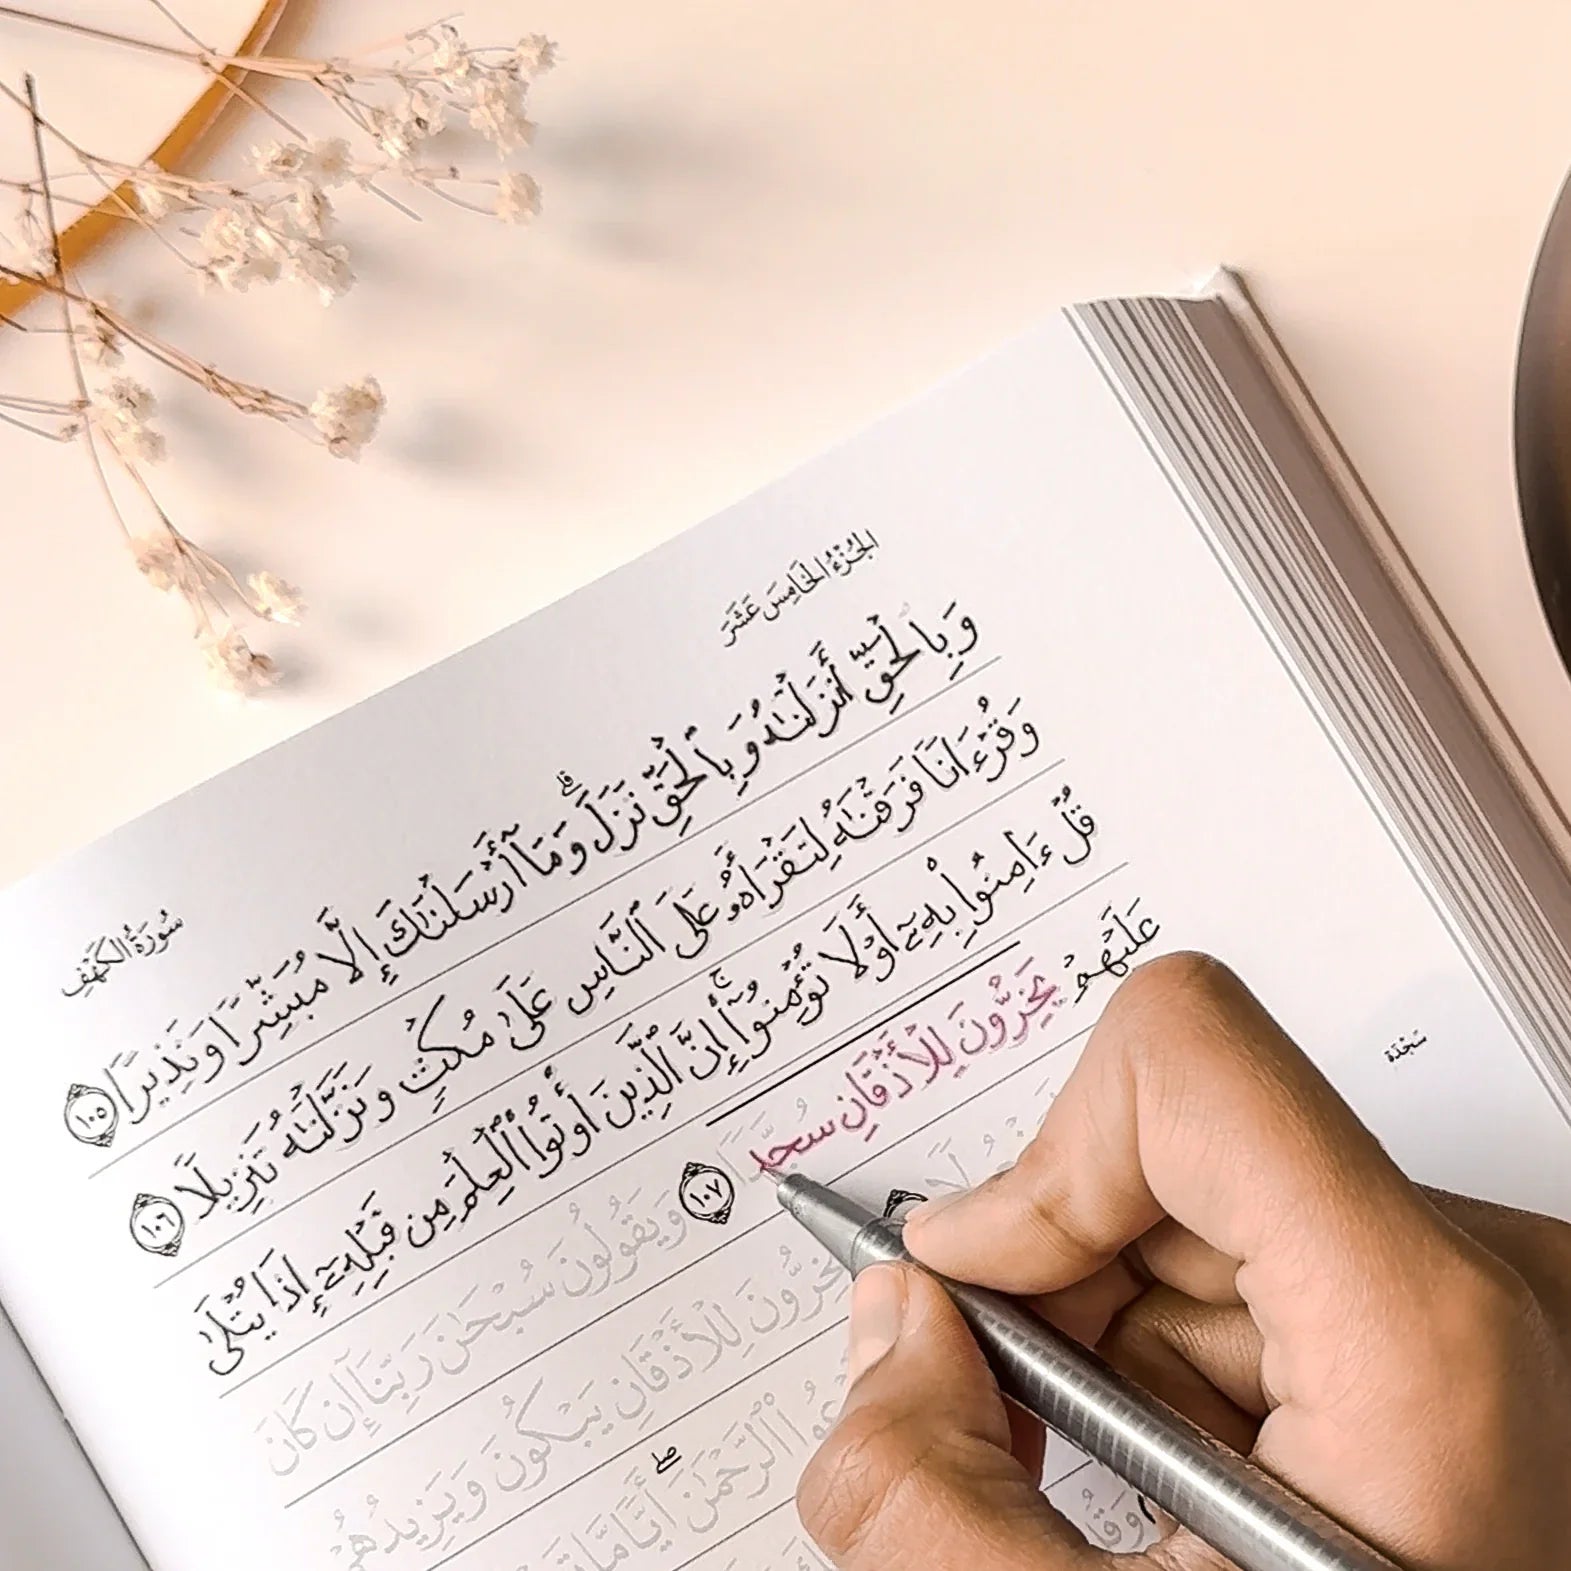 سُورَةُ الكَهْفِ
الجُزْءُ الخَامِسَ عَشَرَ
وَبِٱلْحَقِّ أَنزَلْنَـٰهُ وَبِٱلْحَقِّ نَزَلَ ۗ وَمَآ أَرْسَلْنَـٰكَ إِلَّا مُبَشِّرًا وَنَذِيرًا ١٠٥
وَقُرْءَانًا فَرَقْنَـٰهُ لِتَقْرَأَهُۥ عَلَى ٱلنَّاسِ عَلَىٰ مُكْثٍ وَنَزَّلْنَـٰهُ تَنزِيلًا ١٠٦
قُلْ ءَامِنُوا۟ بِهِۦٓ أَوْ لَا تُؤْمِنُوٓا۟ ۚ إِنَّ ٱلَّذِينَ أُوتُوا۟ ٱلْعِلْمَ مِن قَبْلِهِۦٓ إِذَا يُتْلَىٰ
عَلَيْهِمْ يَخِرُّونَ لِلْأَذْقَانِ سُجَّدًا ١٠٧ وَيَقُولُونَ سُبْحَـٰنَ رَبِّنَآ إِن كَانَ
يَخِرُّونَ لِلْأَذْقَانِ يَبْكُونَ وَيَزِيدُهُمْ
ٱلرَّحْمَـٰنَ ۖ أَيًّا مَّا
سَجْدَة